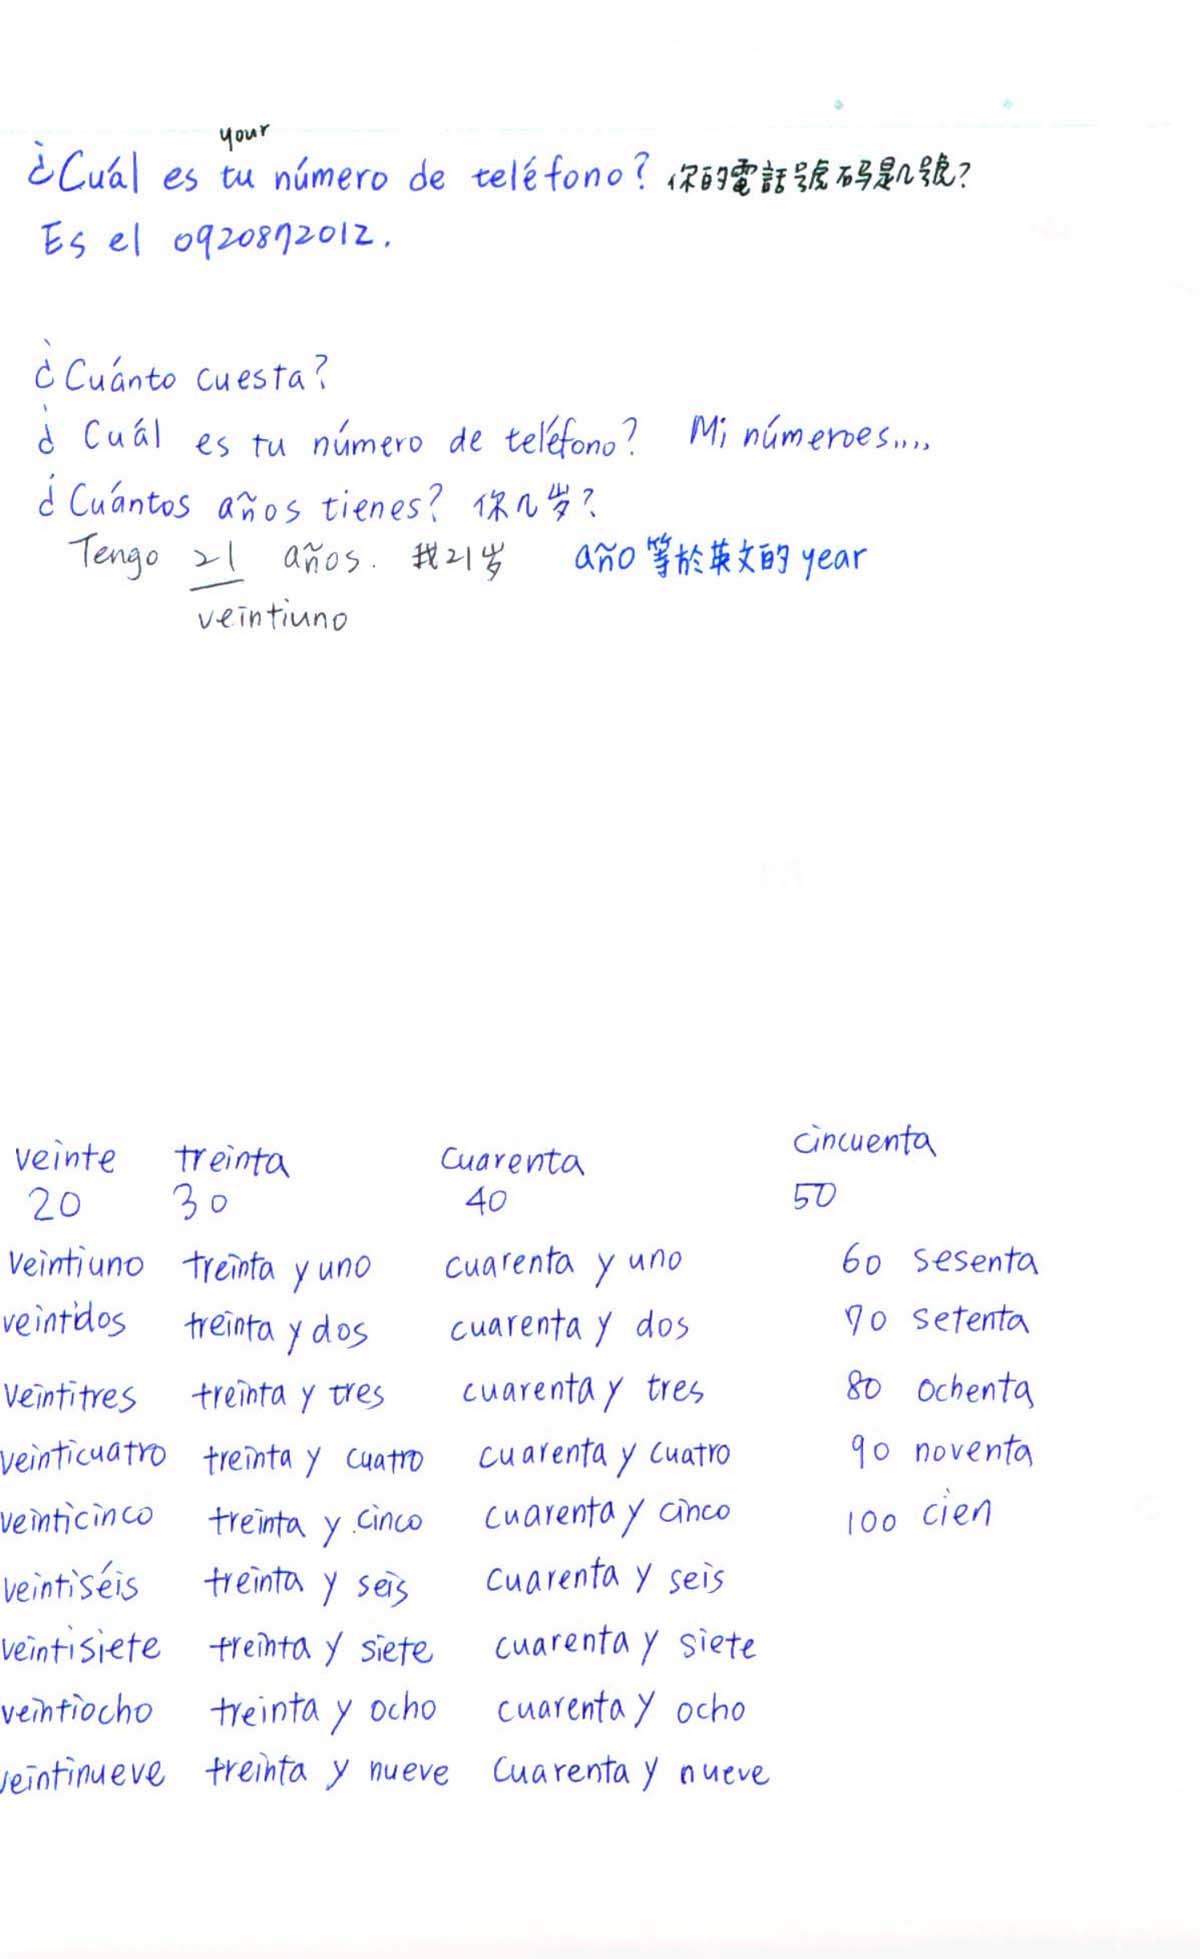 your
¿Cuál es tu número de teléfono? 你的電話號码是几號?
Es el 0920872012.
¿Cuánto cuesta?
¿Cuál es tu número de teléfono? Mi número es....
¿Cuántos años tienes? 你几岁?
Tengo 21 años. 我21岁 año 等於英文的 year
veintiuno
veinte treinta cuarenta cincuenta
20 30 40 50
Veintiuno treinta y uno cuarenta y uno 60 sesenta
veintidos treinta y dos cuarenta y dos 70 setenta
Veintitres treinta y tres cuarenta y tres 80 ochenta
veinticuatro treinta y cuatro cuarenta y cuatro 90 noventa
veinticinco treinta y cinco cuarenta y cinco 100 cien
veintiséis treinta y seis cuarenta y seis
veintisiete treinta y siete cuarenta y siete
veintiocho treinta y ocho cuarenta y ocho
veintinueve treinta y nueve cuarenta y nueve